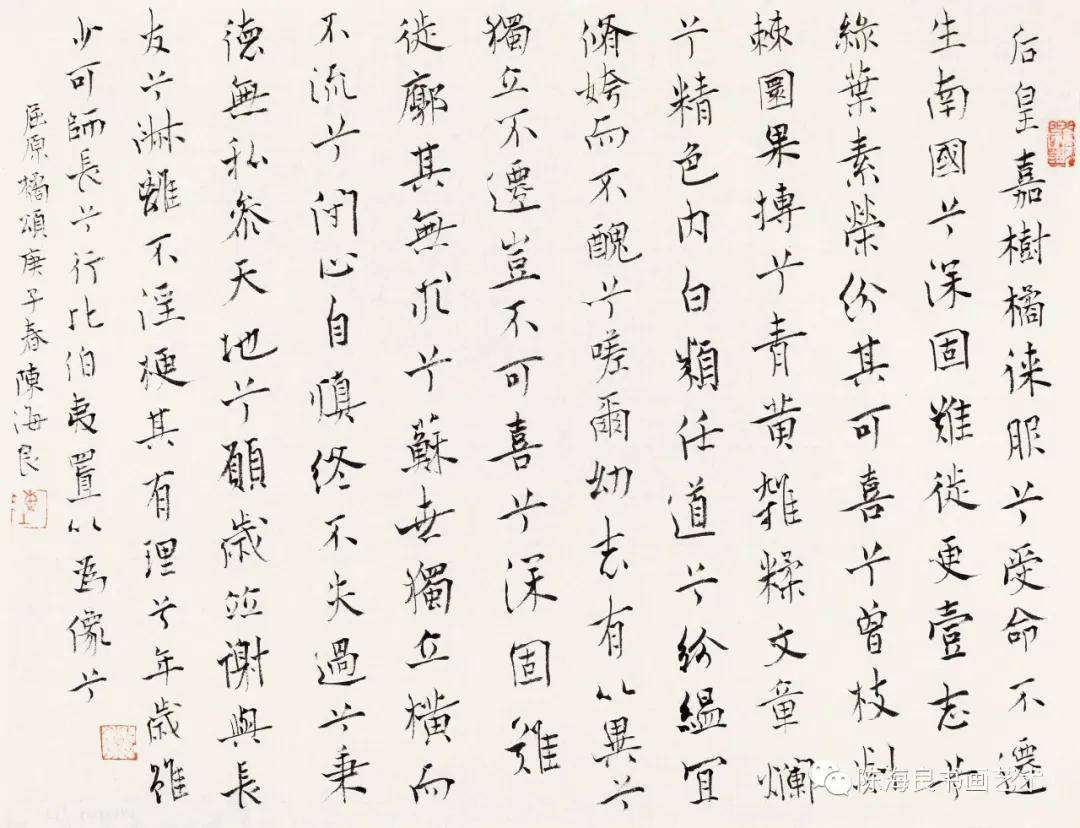 后皇嘉樹橘徠服兮受命不遷
生南國兮深固難徙更壹志兮
綠葉素榮紛其可喜兮曾枝剡
棘圓果摶兮青黃雜糅文章爛
兮精色內白類任道兮紛緼宜
脩姱而不醜兮嗟爾幼志有以異兮
獨立不遷豈不可喜兮深固難
徙廓其無求兮蘇世獨立橫而
不流兮閉心自慎終不失過兮秉
德無私參天地兮願歲並謝與長
友兮淑離不淫梗其有理兮年歲雖
少可師長兮行比伯夷置以為像兮
屈原橘頌庚子春陳海良
陈海良书画艺术